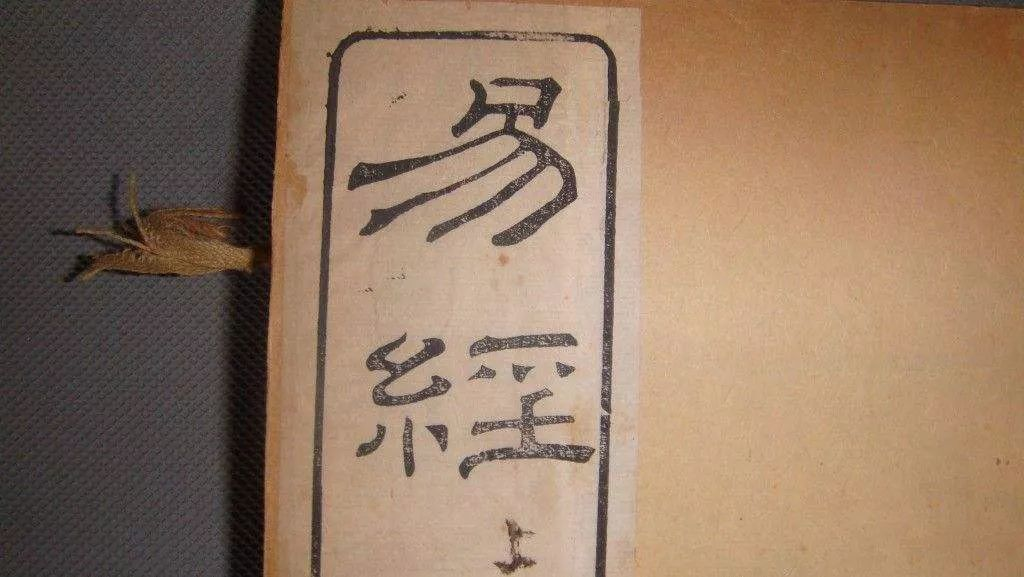 易經
上